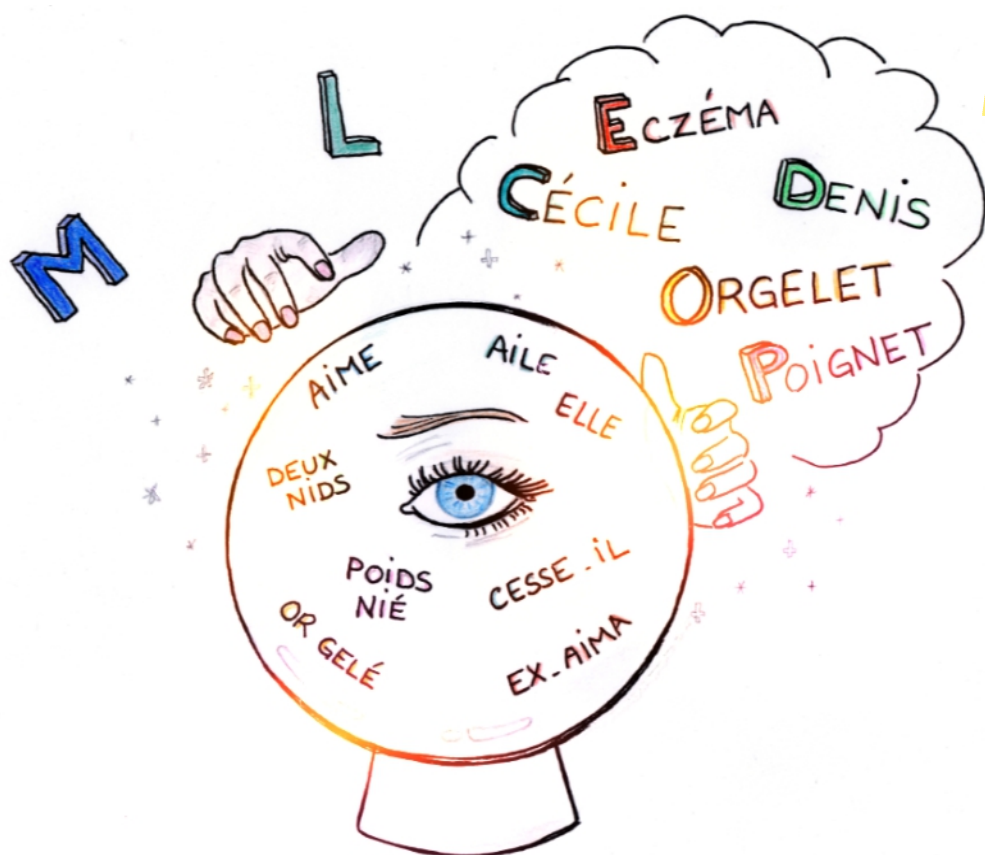 L
M
ECZÉMA
CÉCILE
DENIS
ORGELET
POIGNET
AIME
AILE
ELLE
DEUX
NIDS
POIDS
NIÉ
CESSE-IL
OR GELÉ
EX-AIMA